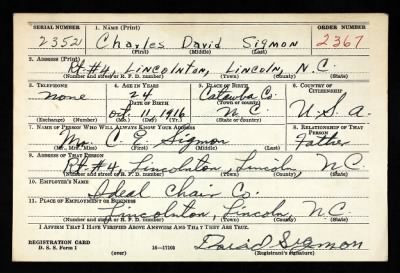 SERIAL NUMBER 1. NAME (Print) ORDER NUMBER
2352 Charles David Sigmon 2367
2. ADDRESS (Print)
Rt. #4, Lincolnton, Lincoln, N.C.
(Number and street or R. F. D. number) (Town) (County) (State)
3. TELEPHONE 4. AGE IN YEARS 5. PLACE OF BIRTH 6. COUNTRY OF CITIZENSHIP
none 24 Catawba Co.
DATE OF BIRTH (Town or county)
Oct 11, 1916 N.C. U.S.A.
(Exchange) (Number) (Mo.) (Day) (Yr.) (State or country)
7. NAME OF PERSON WHO WILL ALWAYS KNOW YOUR ADDRESS 8. RELATIONSHIP OF THAT PERSON
Mr. C. E. Sigmon Father
(Mr., Mrs., Miss) (First) (Middle) (Last)
9. ADDRESS OF THAT PERSON
Rt. #4, Lincolnton, Lincoln N.C.
(Number and street or R. F. D. number) (Town) (County) (State)
10. EMPLOYER'S NAME
Ideal Chair Co.
11. PLACE OF EMPLOYMENT OR BUSINESS
Lincolnton, Lincoln, N.C.
(Number and street or R. F. D. number) (Town) (County) (State)
I AFFIRM THAT I HAVE VERIFIED ABOVE ANSWERS AND THAT THEY ARE TRUE.
REGISTRATION CARD
D. S. S. Form 1 (over) 16—17105 David Sigmon
(Registrant's signature)